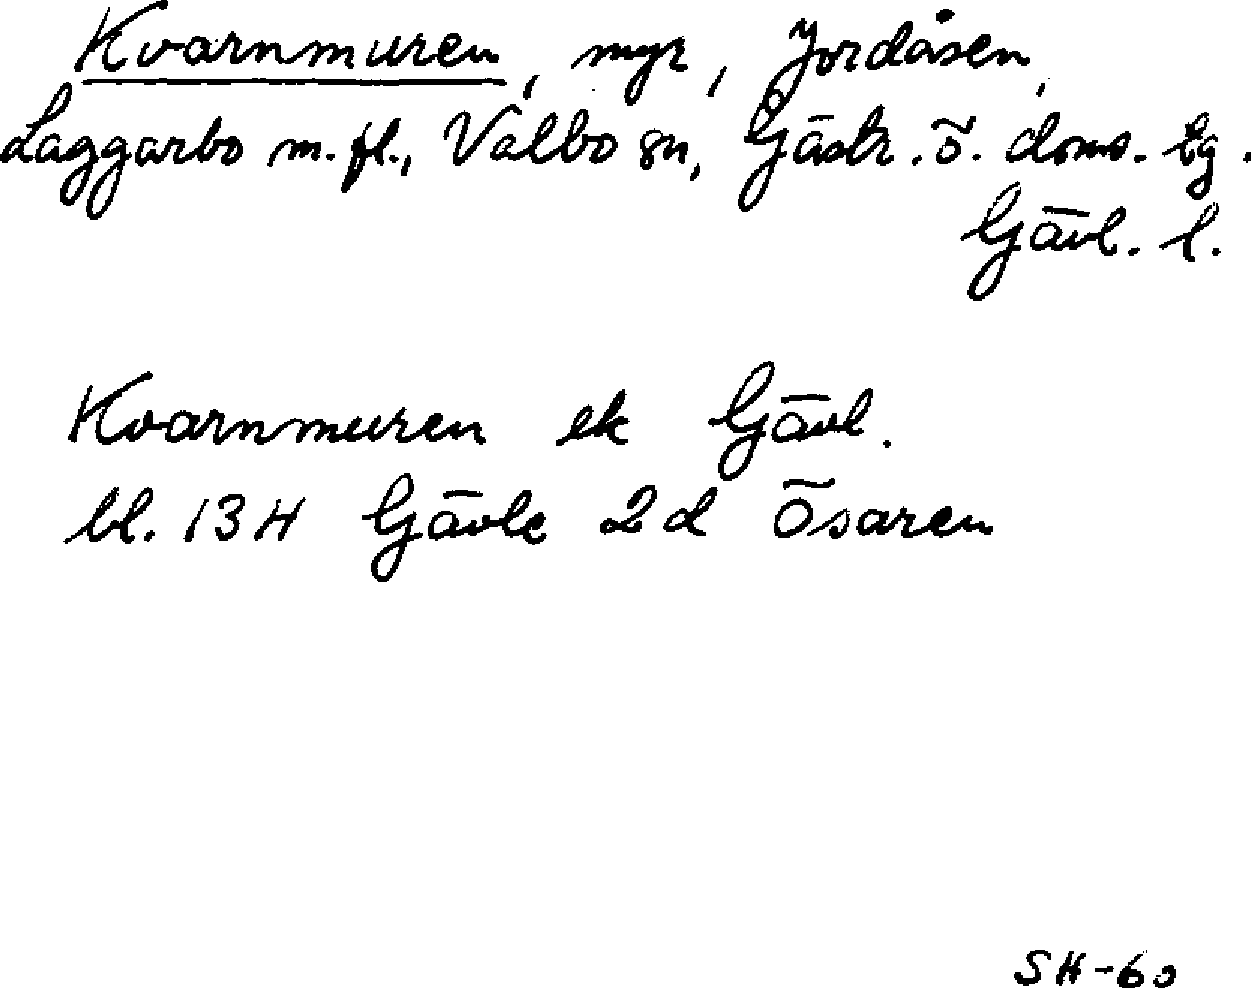 Kvarnmuren, myr, Jordåsen,
Laggarbo m. fl., Valbo sn, Gästr. ö. doms. tg.
Gävl. l.
Kvarnmuren ek Gävl.
bl. 13H Gävle 2d Ösaren
SH-60